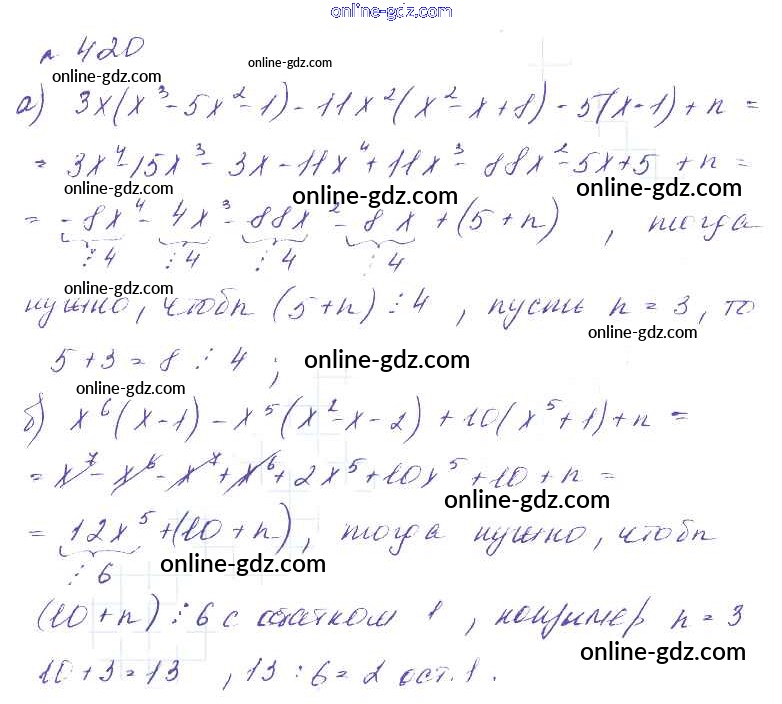 online-gdz.com
№ 420
online-gdz.com online-gdz.com
а) 3x(x³-5x²-1)-11x²(x²-x+8)-5(x-1)+n =
= 3x⁴-15x³-3x-11x⁴+11x³-88x²-5x+5+n =
online-gdz.com online-gdz.com online-gdz.com
= -8x⁴-4x³-88x²-8x+(5+n), тогда
⋮4 ⋮4 ⋮4 ⋮4
online-gdz.com
нужно, чтобы (5+n)⋮4, пусть n=3, то
online-gdz.com
5+3=8⋮4; online-gdz.com
online-gdz.com
б) x⁶(x-1)-x⁵(x²-x-2)+10(x⁵+1)+n =
= x⁷-x⁶-x⁷+x⁶+2x⁵+10x⁵+10+n =
online-gdz.com
= 12x⁵+(10+n), тогда нужно, чтобы
⋮6 online-gdz.com
(10+n)⋮6 с остатком 1, например n=3
online-gdz.com
10+3=13, 13:6=2 ост.1.